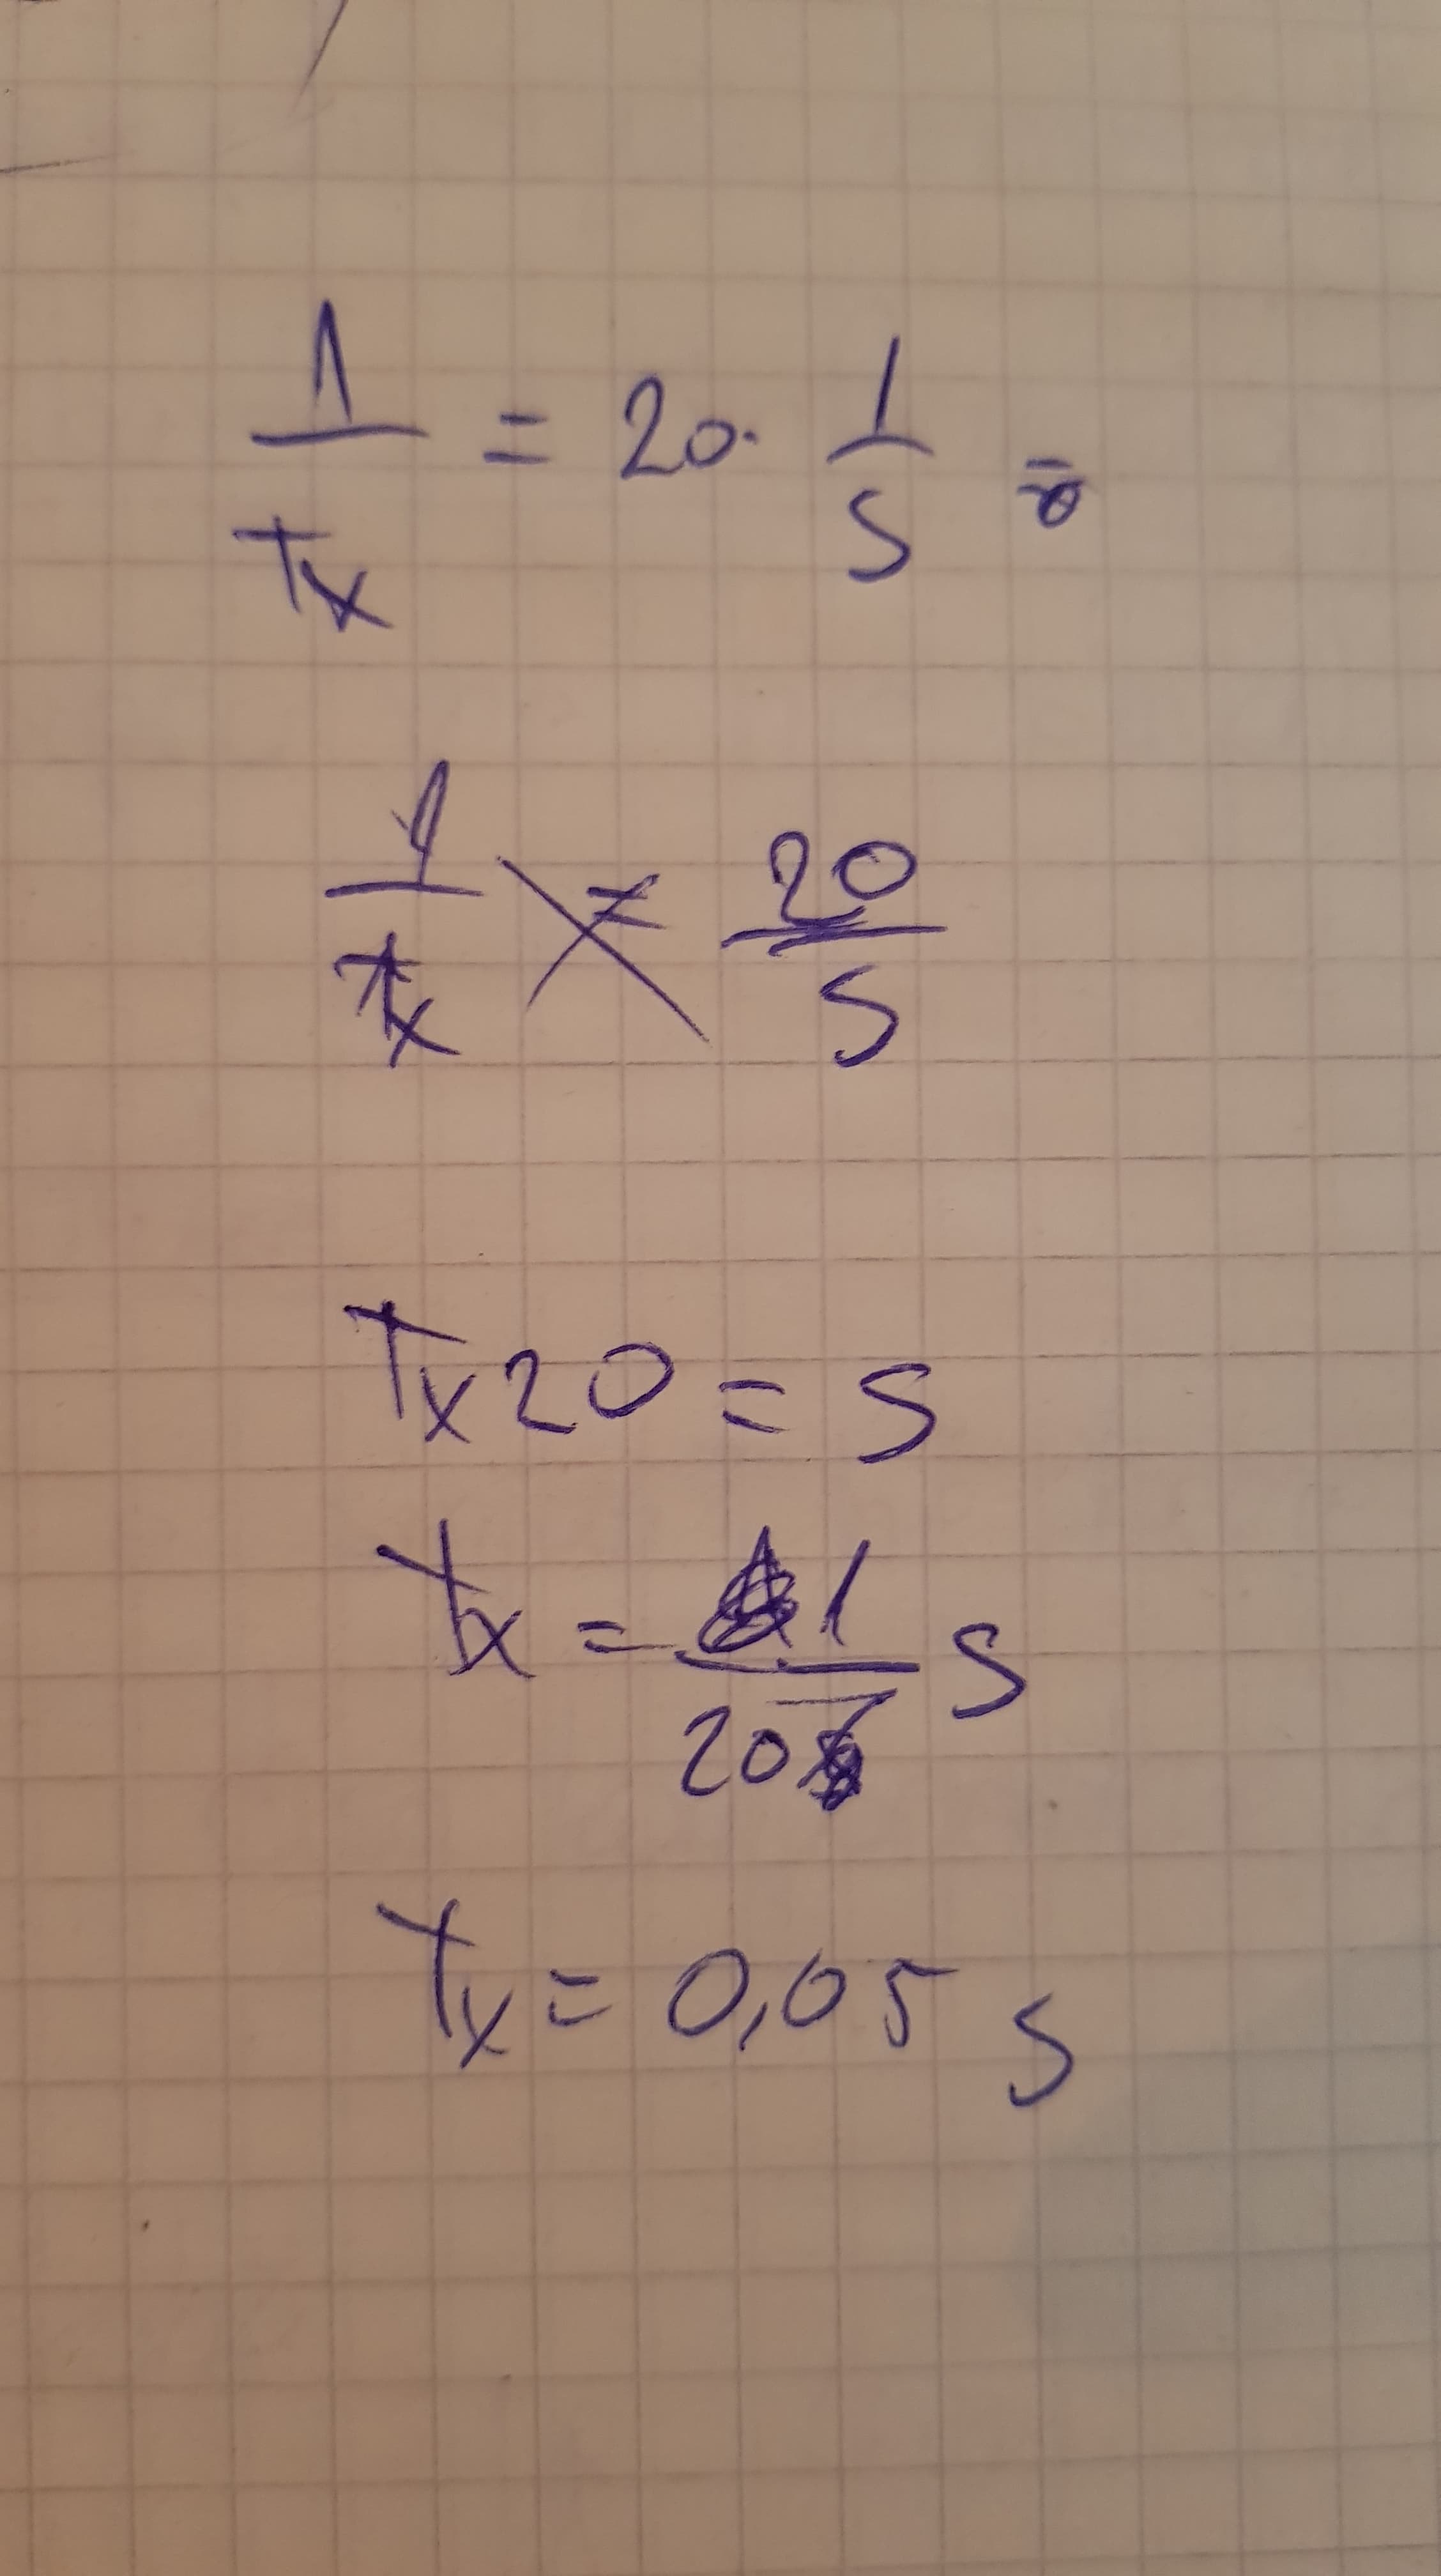 1/Tx = 20 · 1/s =
1/Tx = 20/s
Tx 20 = s
Tx = 1/20 s
Tx = 0,05 s